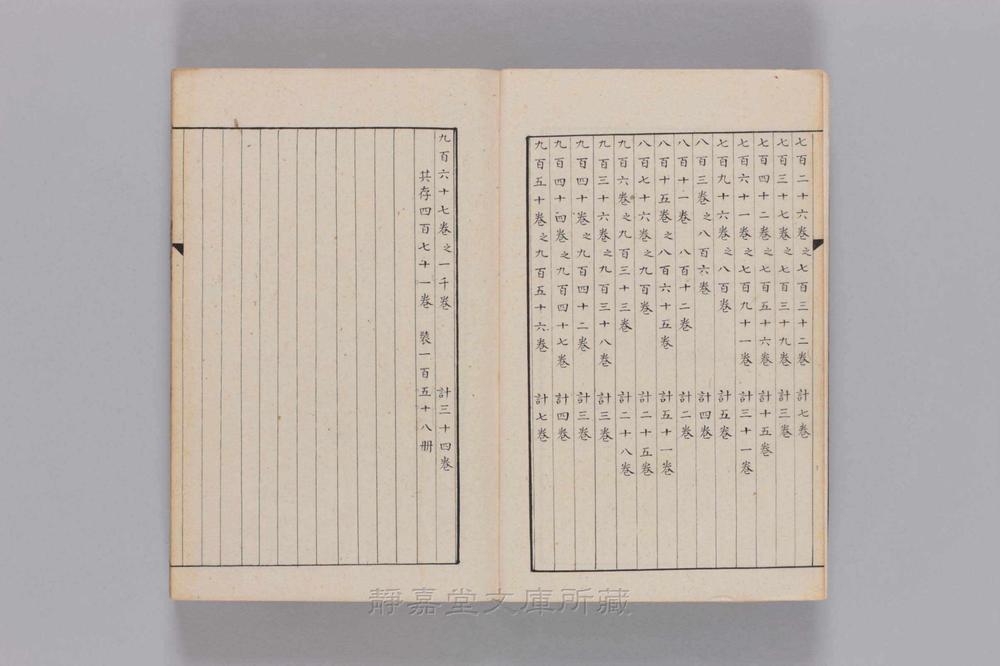 七百二十六卷之七百三十二卷　計七卷
七百三十七卷之七百三十九卷　計三卷
七百四十二卷之七百五十六卷　計十五卷
七百六十一卷之七百九十一卷　計三十一卷
七百九十六卷之八百卷　計五卷
八百三卷之八百六卷　計四卷
八百十一卷　八百十二卷　計二卷
八百十五卷之八百六十五卷　計五十一卷
八百七十六卷之九百卷　計二十五卷
九百六卷之九百三十三卷　計二十八卷
九百三十六卷之九百三十八卷　計三卷
九百四十卷之九百四十二卷　計三卷
九百四十四卷之九百四十七卷　計四卷
九百五十卷之九百五十六卷　計七卷
九百六十七卷之一千卷　計三十四卷
共存四百七十一卷　裝一百五十八冊
靜嘉堂文庫所藏